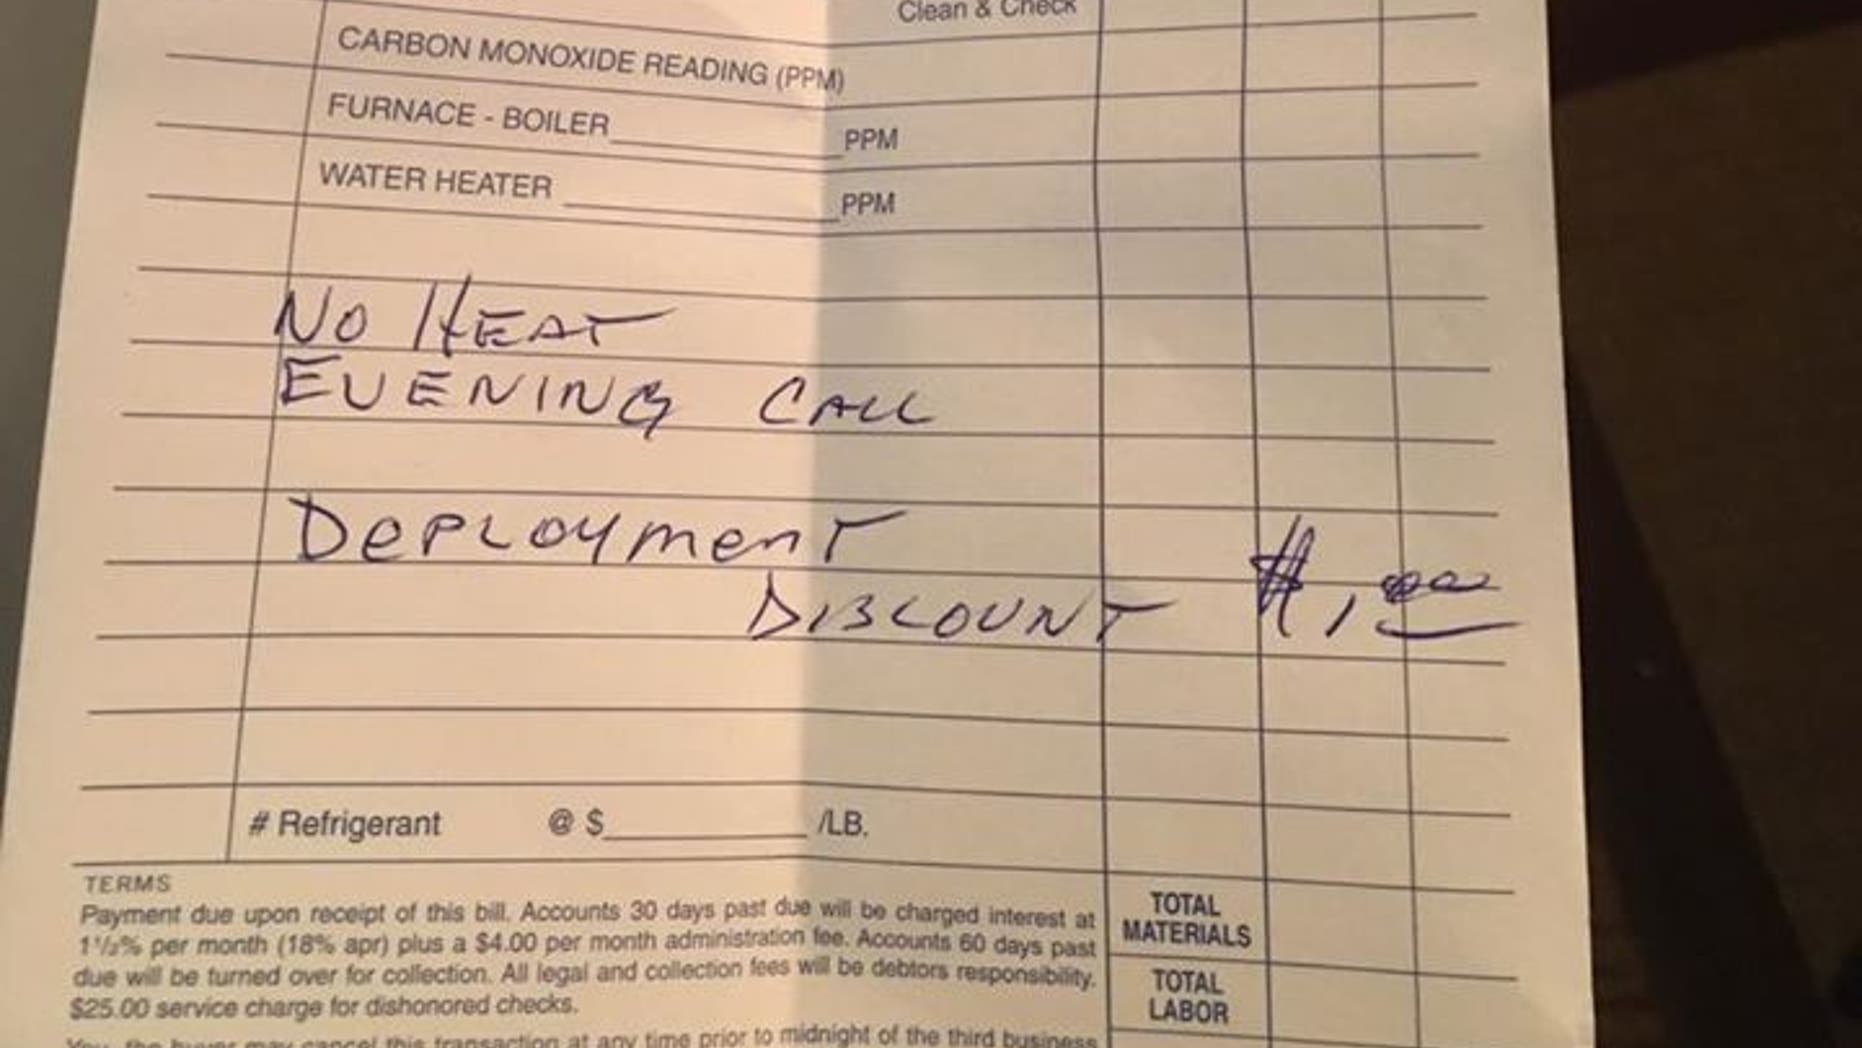 Clean & Check
CARBON MONOXIDE READING (PPM)
FURNACE - BOILER PPM
WATER HEATER PPM
NO HEAT
EVENING CALL
DEPLOYMENT
DISCOUNT $1,00
# Refrigerant @ $ /LB.
TERMS
Payment due upon receipt of this bill. Accounts 30 days past due will be charged interest at
1 1/2% per month (18% apr) plus a $4.00 per month administration fee. Accounts 60 days past
due will be turned over for collection. All legal and collection fees will be debtors responsibility.
$25.00 service charge for dishonored checks.
You, the buyer may cancel this transaction at any time prior to midnight of the third business
TOTAL
MATERIALS
TOTAL
LABOR